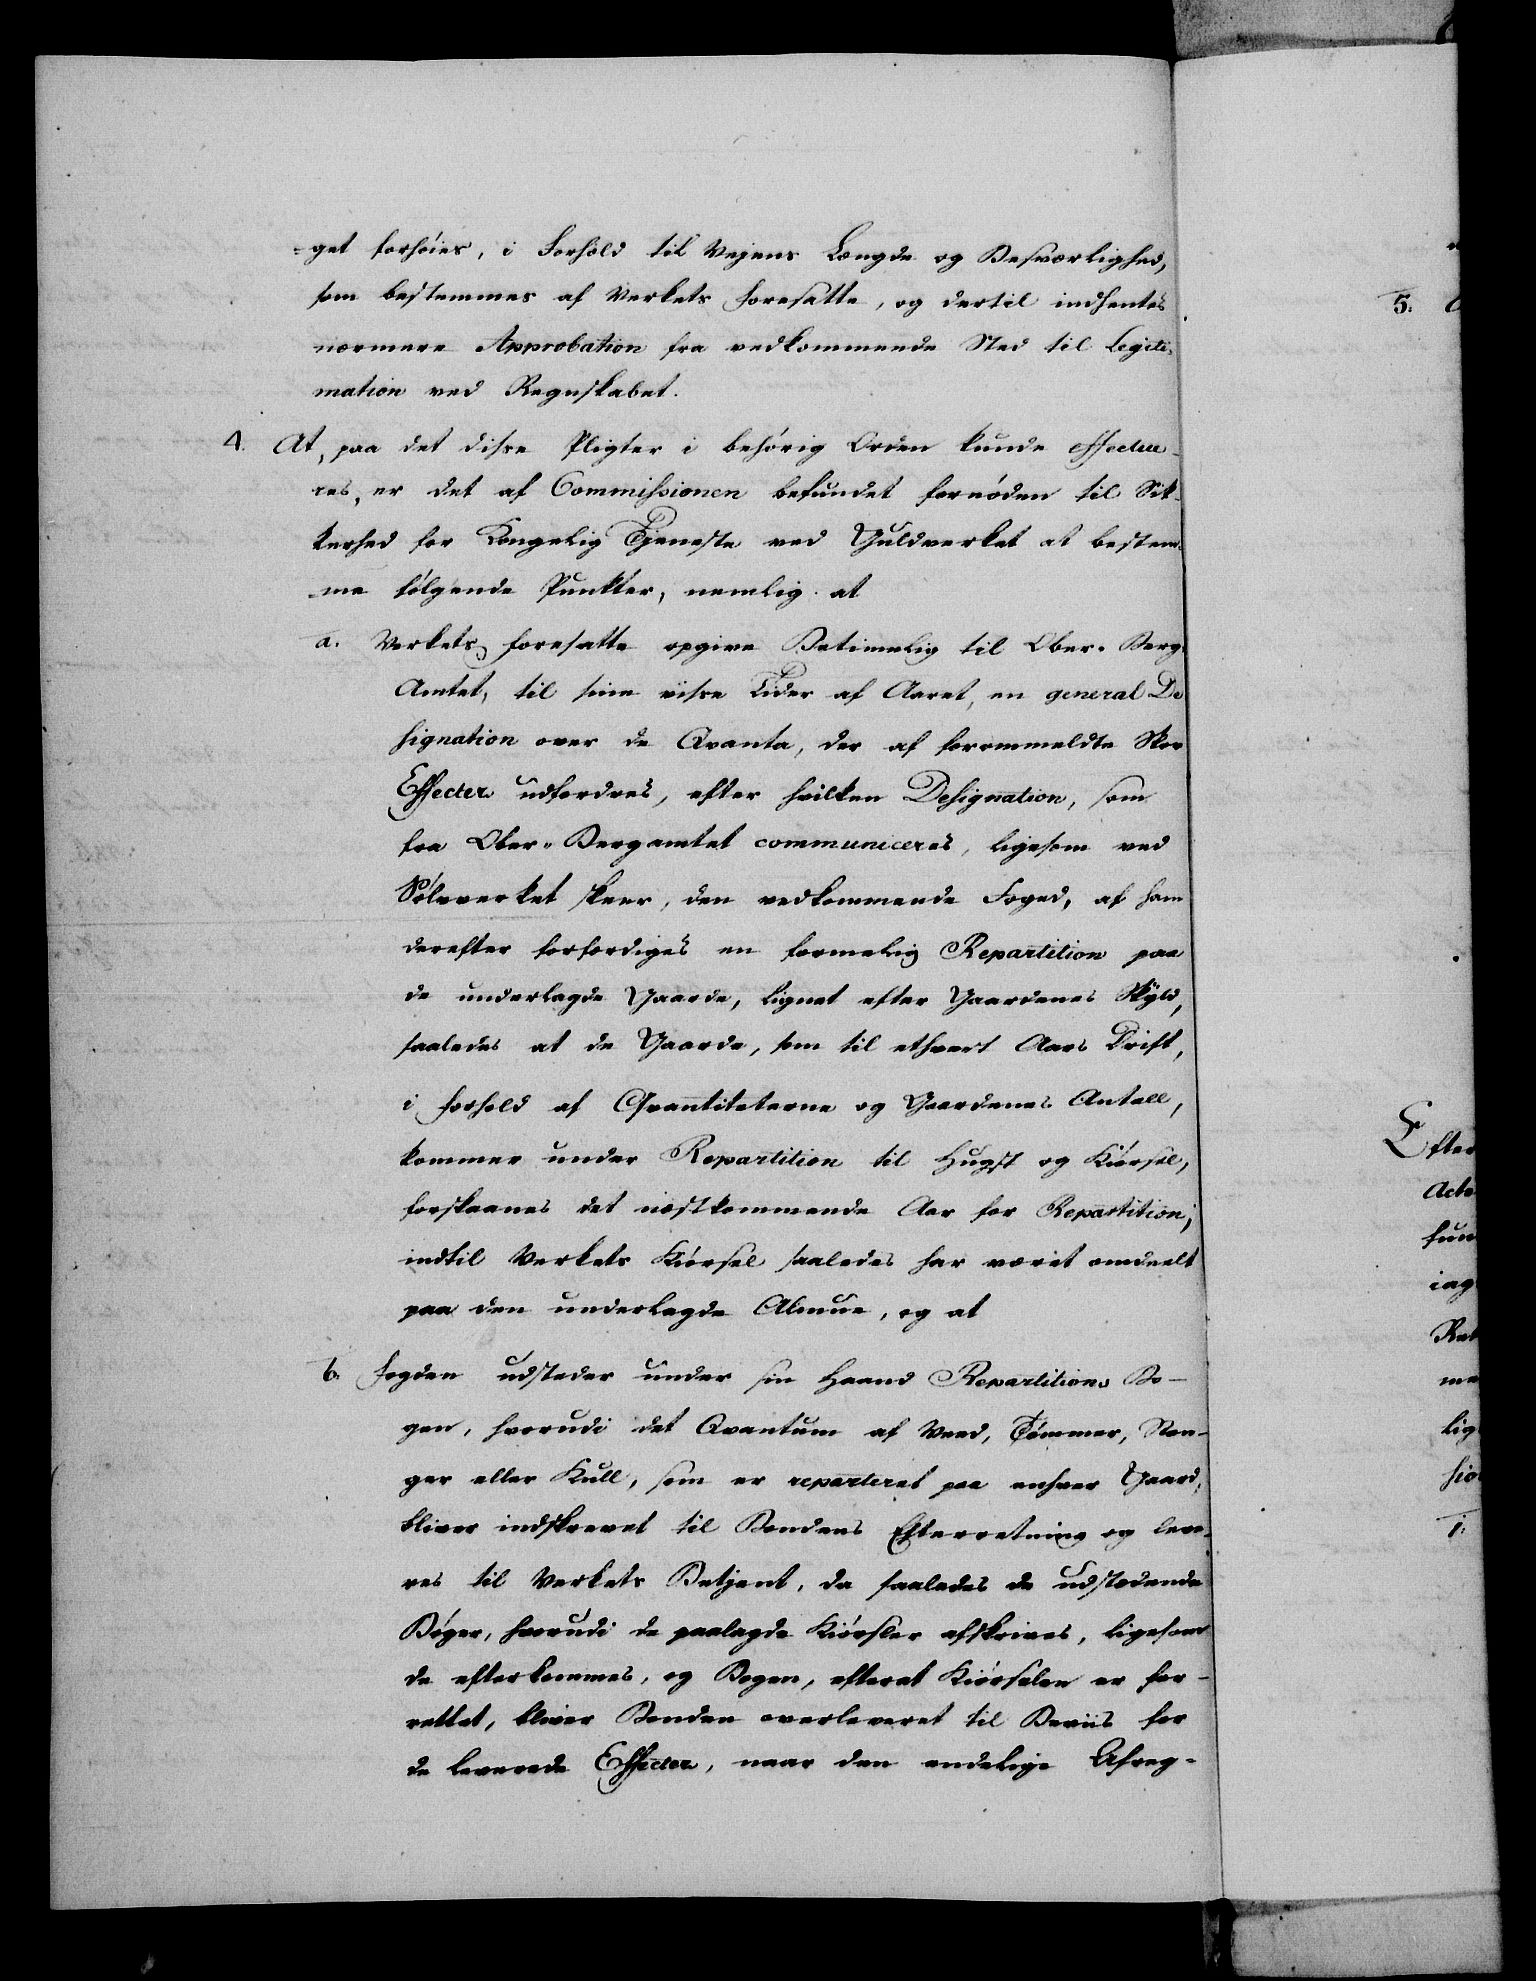 get forhøies, i Forhold til Vejens Længde og Besværlighed,
som bestemmes af Verkets foresatte, og dertil indhentes
nærmere Approbation fra vedkommende Sted til Legiti-
mation ved Regnskabet.
4. At, paa det disse Pligter i behørig Orden kunde effectue-
res, er det af Commissionen befundet fornøden til Sik-
kerhed for Kongelig Tjeneste ved Guldverket at bestem-
me følgende Punkter, nemlig at
a. Verkets foresatte opgive Betimelig til Ober-Berg-
Amtet, til sine visse Tider af Aaret, en general De
signation over de Qvanta, der af forommeldte Skov
Effecter udfordres, efter hvilken Designation, som
fra Ober-Bergamtet communiceres, ligesom ved
Sølvverket skeer, den vedkommende Foged, af ham
derefter forfærdiges en formelig Repartition paa
de underlagde Gaarde, lignet efter Gaardenes Skyld,
saaledes at de Gaarde, som til ethvert Aars Drift,
i forhold af Qvantiteterne og Gaardenes Antall,
kommer under Repartition til Hugst og Kiørsel,
forskaanes det næstkommende Aar for Repartition,
indtil Verkets Kiørsel saaledes har været omdeelt
paa den underlagde Almue, og at
b. Fogden udsteder under sin Haand Repartitions Bø-
ger, hvorudi det Qvantum af Veed, Tømmer, Stæn-
ger eller Kull, som er reparteret paa enhver Gaard,
bliver indskrevet til Bondens Efterretning og leve-
res til Verkets Betjent, da saaledes de udstædende
Bøger, hvorudi de paalagde Kiørsler afskrives, ligesom
de efterkommes, og Bogen, efterat Kiørselen er for-
rettet, bliver Bonden overleveret til Beviis for
de leverede Effecter, naar den endelige Afreg-
5.
Efter
Acte
fun
iag
Ret
me
lig
sio
1.